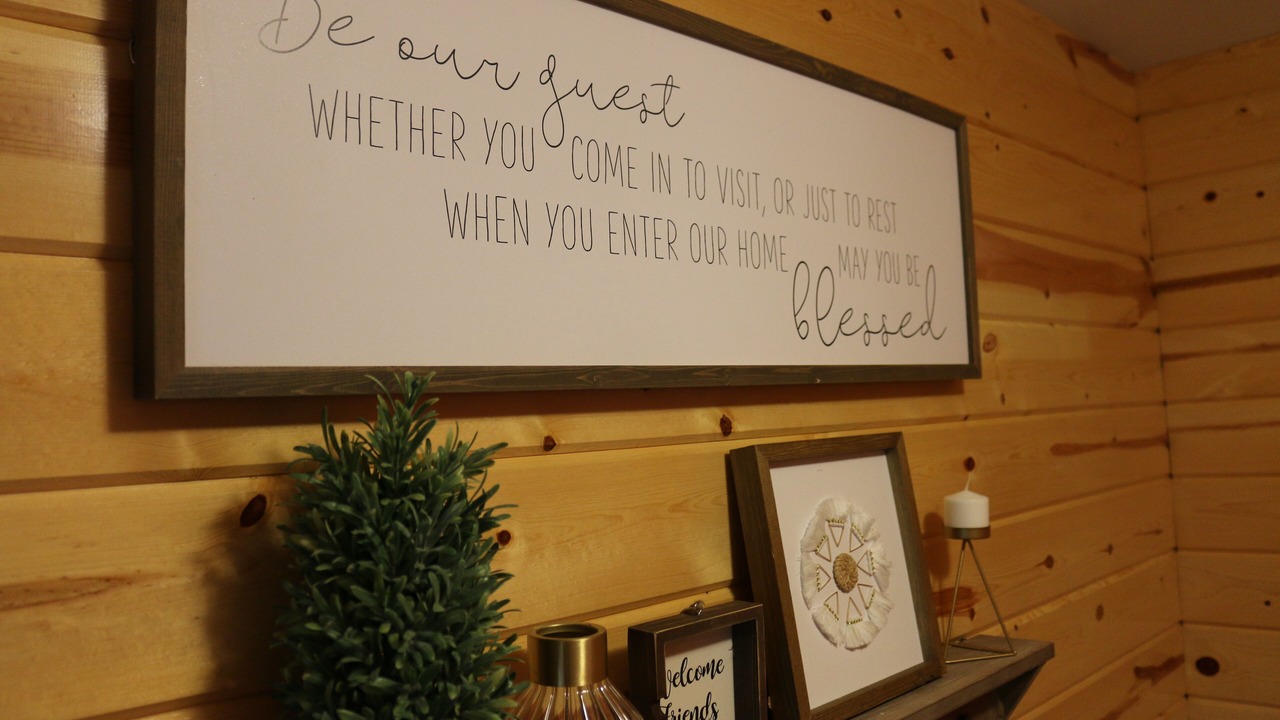 Be our guest
WHETHER YOU COME IN TO VISIT, OR JUST TO REST
WHEN YOU ENTER OUR HOME MAY YOU BE
blessed
Welcome
Friends